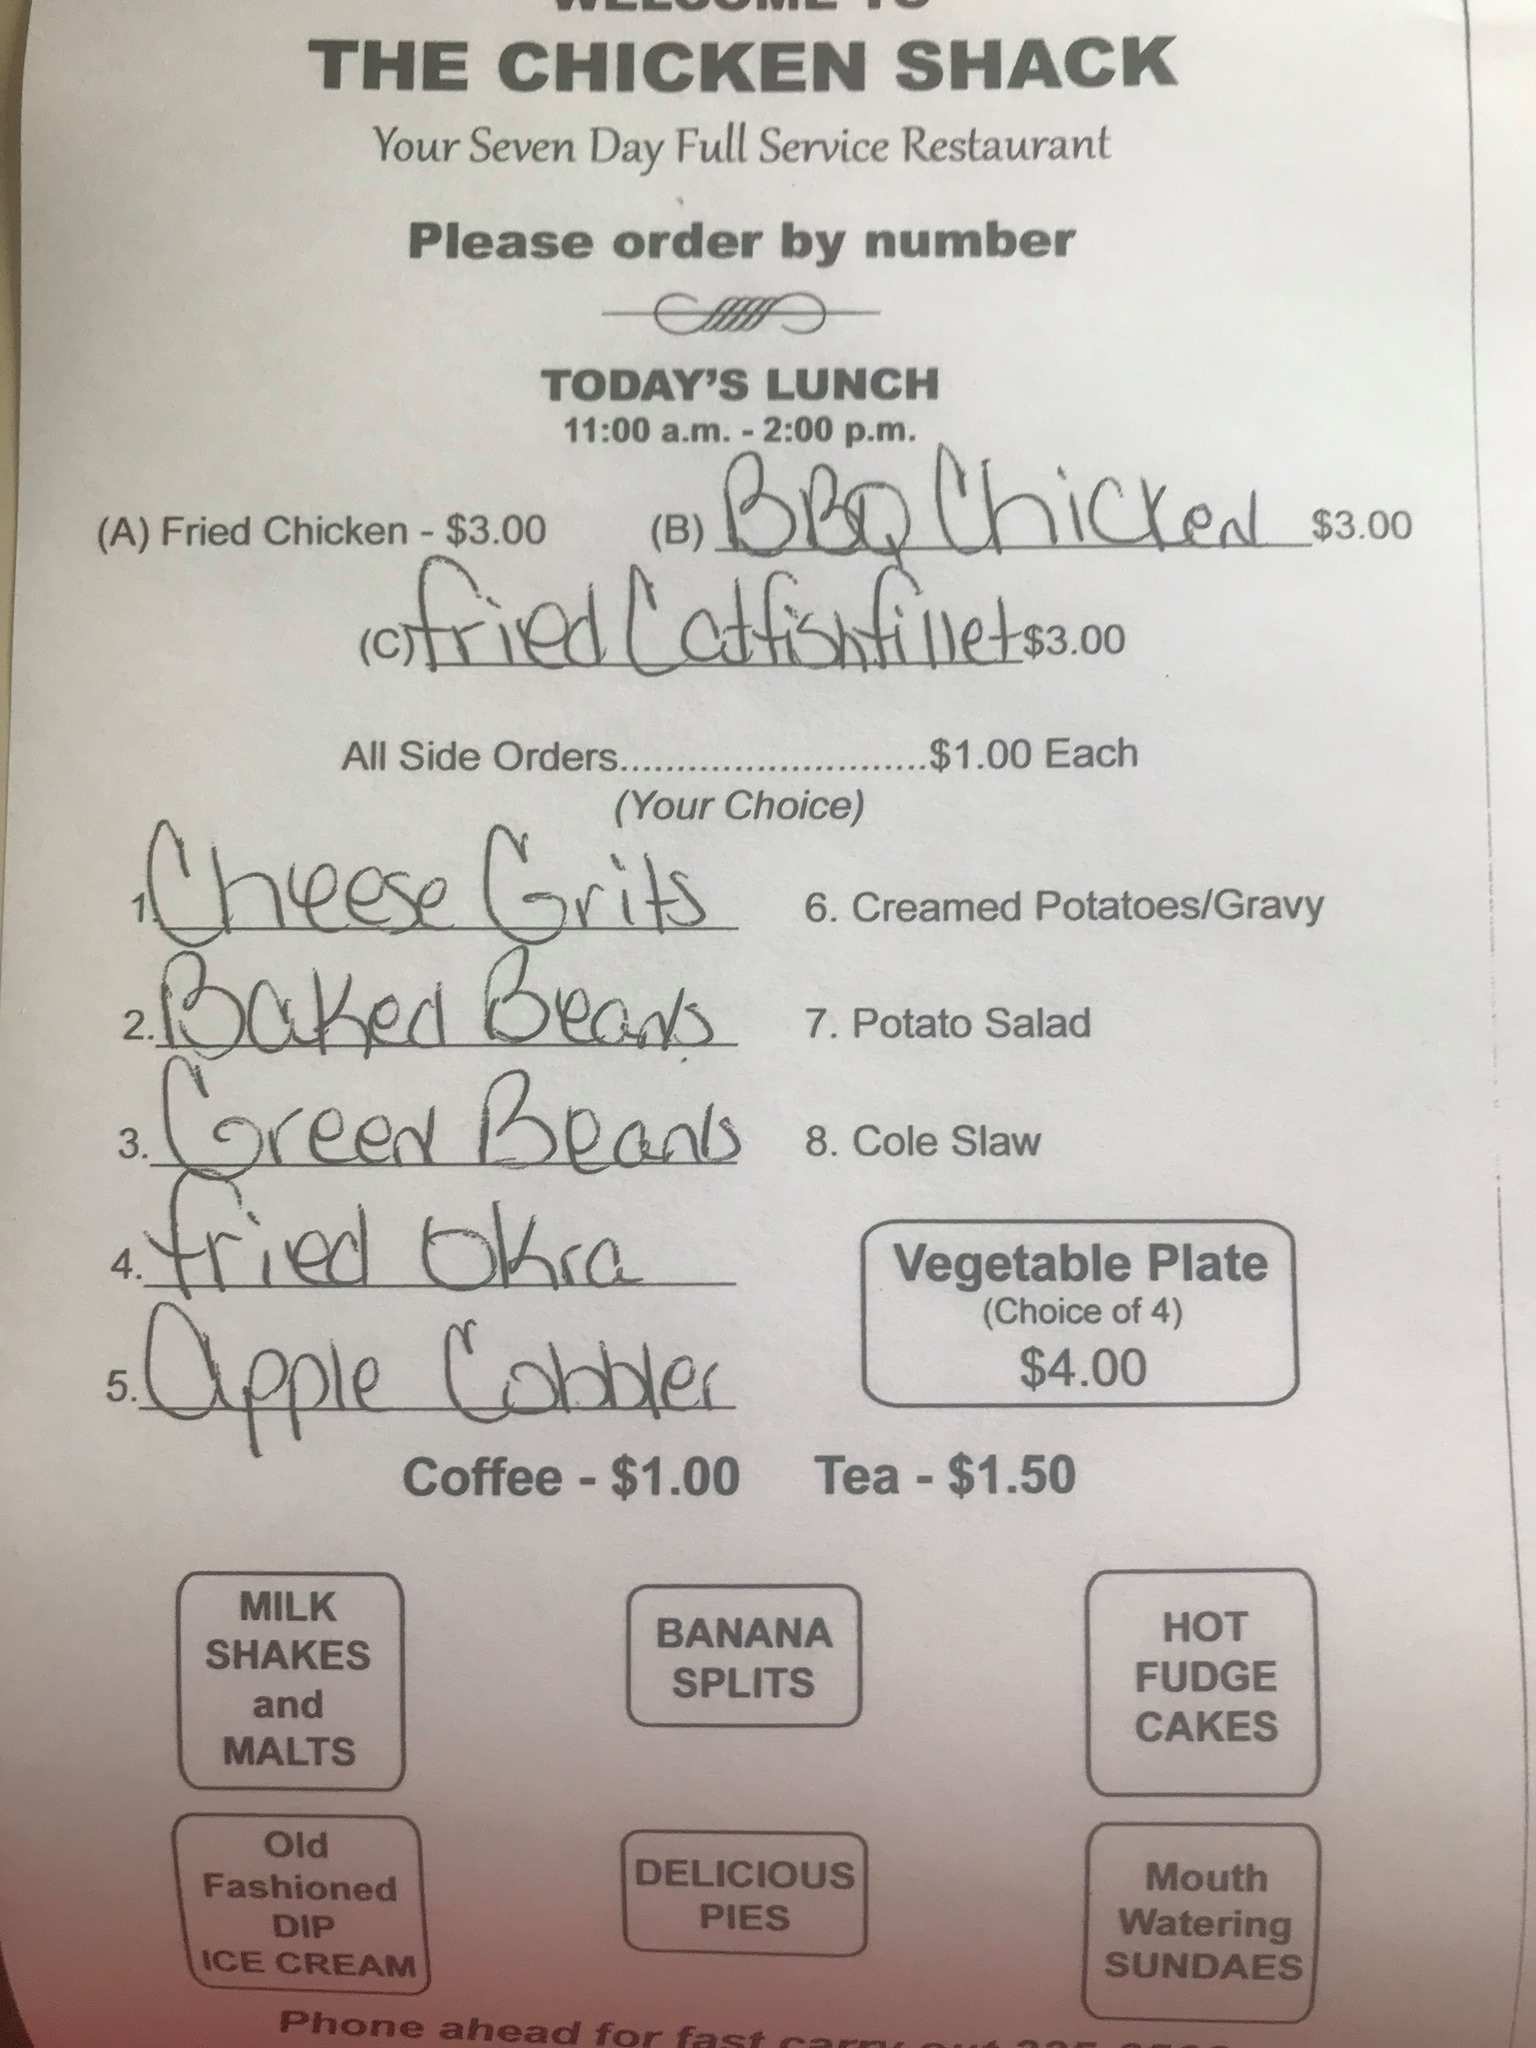 WELCOME TO
THE CHICKEN SHACK
Your Seven Day Full Service Restaurant
Please order by number
TODAY'S LUNCH
11:00 a.m. - 2:00 p.m.
(A) Fried Chicken - $3.00 (B) BBQ Chicken $3.00
(C) fried Catfish fillet $3.00
All Side Orders...........................$1.00 Each
(Your Choice)
1. Cheese Grits
2. Baked Beans
3. Green Beans
4. fried Okra
5. Apple Cobbler
6. Creamed Potatoes/Gravy
7. Potato Salad
8. Cole Slaw
Vegetable Plate
(Choice of 4)
$4.00
Coffee - $1.00 Tea - $1.50
MILK
SHAKES
and
MALTS
BANANA
SPLITS
HOT
FUDGE
CAKES
Old
Fashioned
DIP
ICE CREAM
DELICIOUS
PIES
Mouth
Watering
SUNDAES
Phone ahead for fast carry out